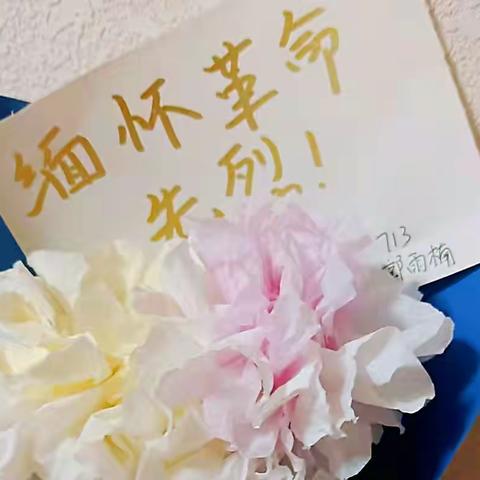 缅怀革命
先烈!
713
郭雨楠